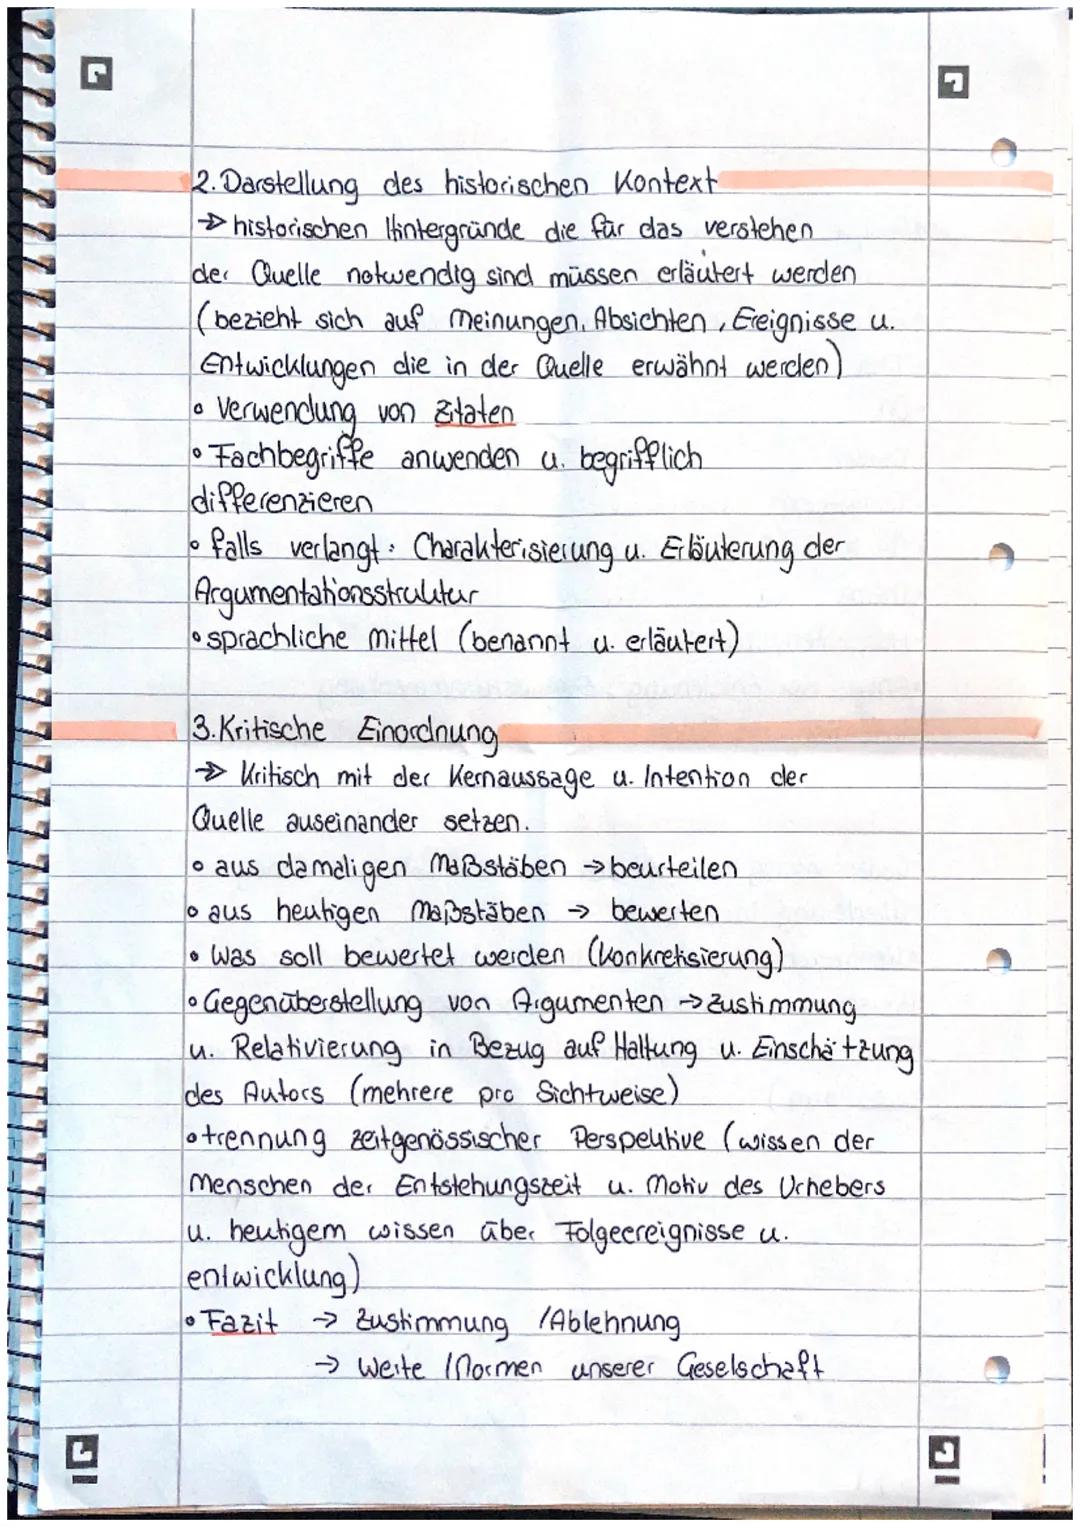 2. Darstellung des historischen Kontext
→ historischen Hintergründe die für das verstehen
der Quelle notwendig sind müssen erläutert werden
(bezieht sich auf Meinungen, Absichten, Ereignisse u.
Entwicklungen die in der Quelle erwähnt werden)
• Verwendung von Zitaten
• Fachbegriffe anwenden u. begrifflich
differenzieren
• falls verlangt: Charakterisierung u. Erläuterung der
Argumentationsstruktur
• sprachliche Mittel (benannt u. erläutert)
3. Kritische Einordnung
→ Kritisch mit der Kernaussage u. Intention der
Quelle auseinander setzen.
• aus damaligen Maßstäben → beurteilen
• aus heutigen Maßstäben → bewerten
• Was soll bewertet werden (Konkretisierung)
• Gegenüberstellung von Argumenten → Zustimmung
u. Relativierung in Bezug auf Haltung u. Einschätzung
des Autors (mehrere pro Sichtweise)
• trennung zeitgenössischer Perspektive (wissen der
Menschen der Entstehungszeit u. Motiv des Urhebers
u. heutigem wissen über Folgeereignisse u.
entwicklung)
• Fazit → Zustimmung / Ablehnung
→ Werte / Normen unserer Geselschaft